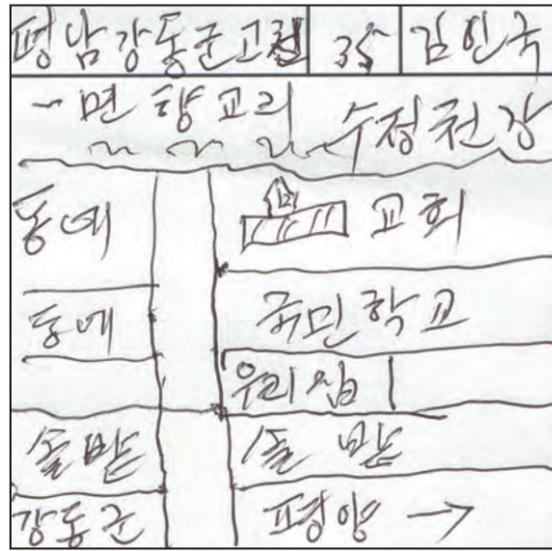 평남강동군고천 35 김인국
면 향교리 수정천장
동네 교회
동네 국민학교
우리집
솔밭 솔밭
강동군 평양 →